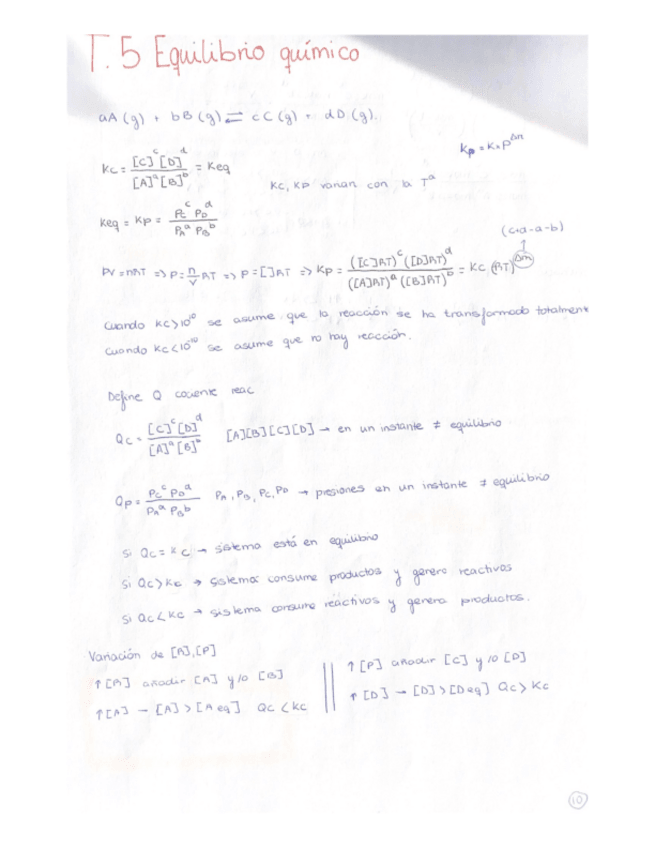 T.5 Equilibrio químico
aA(g) + bB(g) ⇌ cC(g) + dD(g).
Kp = Kx P^Δn
Kc = [C]^c [D]^d / [A]^a [B]^b = Keq
Kc, Kp varían con la Tª
Keq = Kp = Pc^c PD^d / PA^a PB^b
(c+d-a-b)
PV = nRT => P = n/V RT => P = []RT => Kp = ([C]RT)^c ([D]RT)^d / ([A]RT)^a ([B]RT)^b = Kc (RT)^Δn
Cuando Kc>10^10 se asume que la reacción se ha transformado totalmente
Cuando Kc<10^-10 se asume que no hay reacción.
Define Q cociente reac
Qc = [C]^c [D]^d / [A]^a [B]^b [A][B][C][D] → en un instante ≠ equilibrio
Qp = Pc^c PD^d / PA^a PB^b PA, PB, PC, PD → presiones en un instante ≠ equilibrio
Si Qc = Kc → sistema está en equilibrio
Si Qc > Kc → sistema consume productos y genera reactivos
Si Qc < Kc → sistema consume reactivos y genera productos.
Variación de [R],[P]
↑[R] añadir [A] y/o [B]
↑[A] → [A] > [A eq] Qc < Kc
↑[P] añadir [C] y/o [D]
↑[D] → [D] > [D eq] Qc > Kc
10